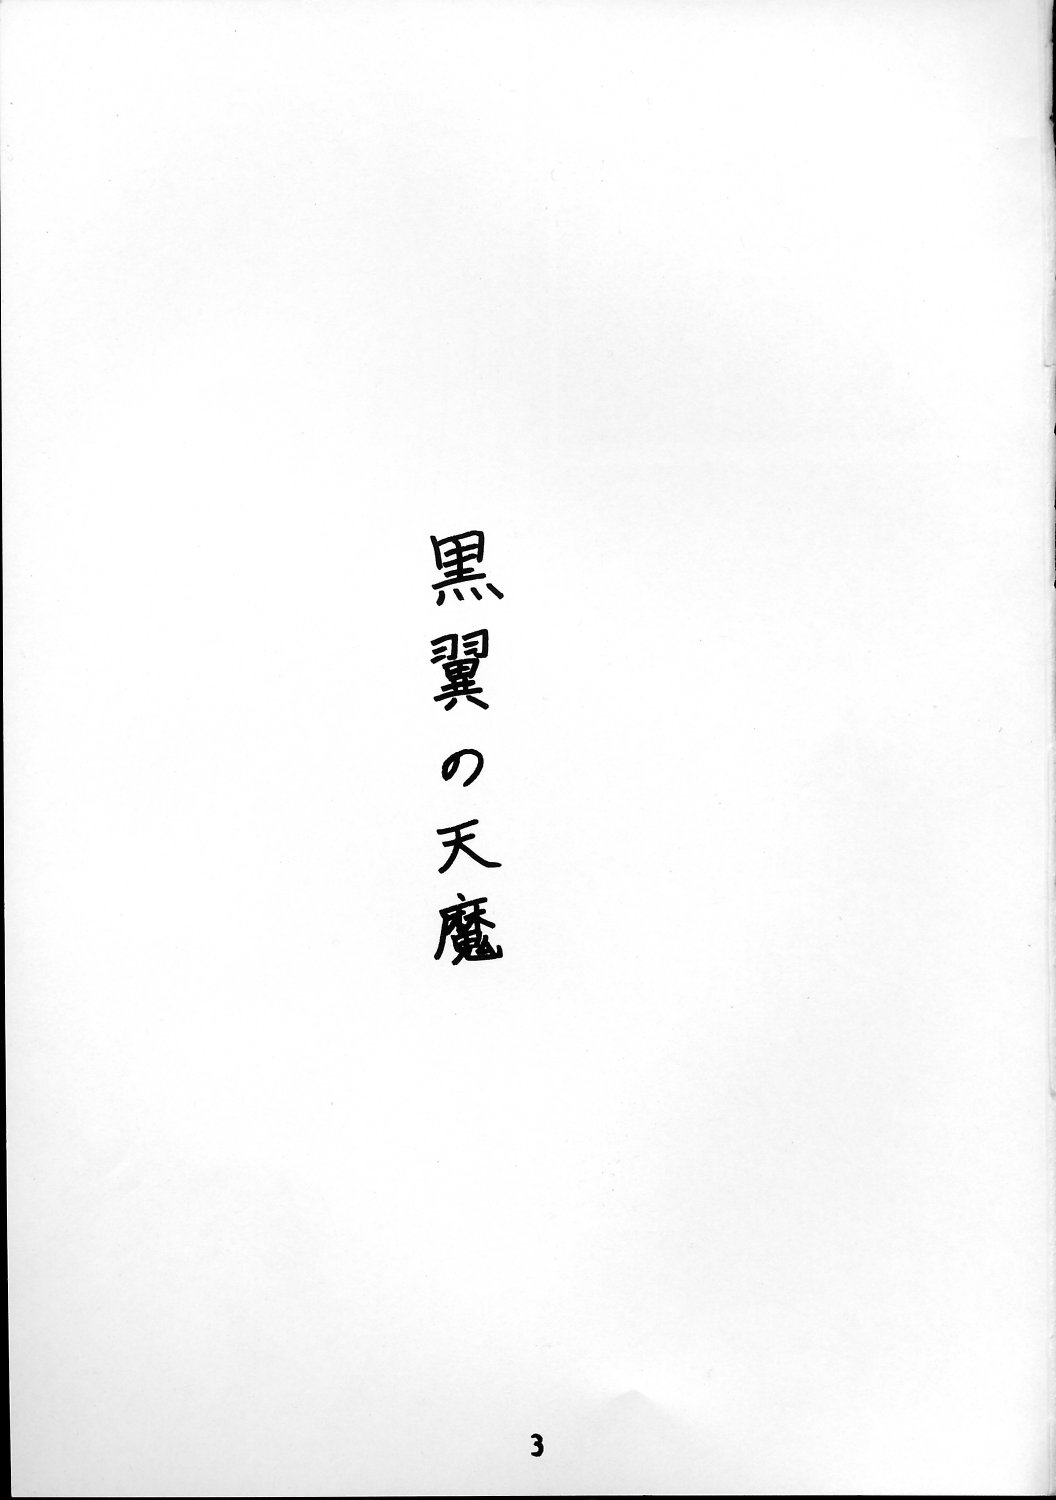 黒翼の天魔
3